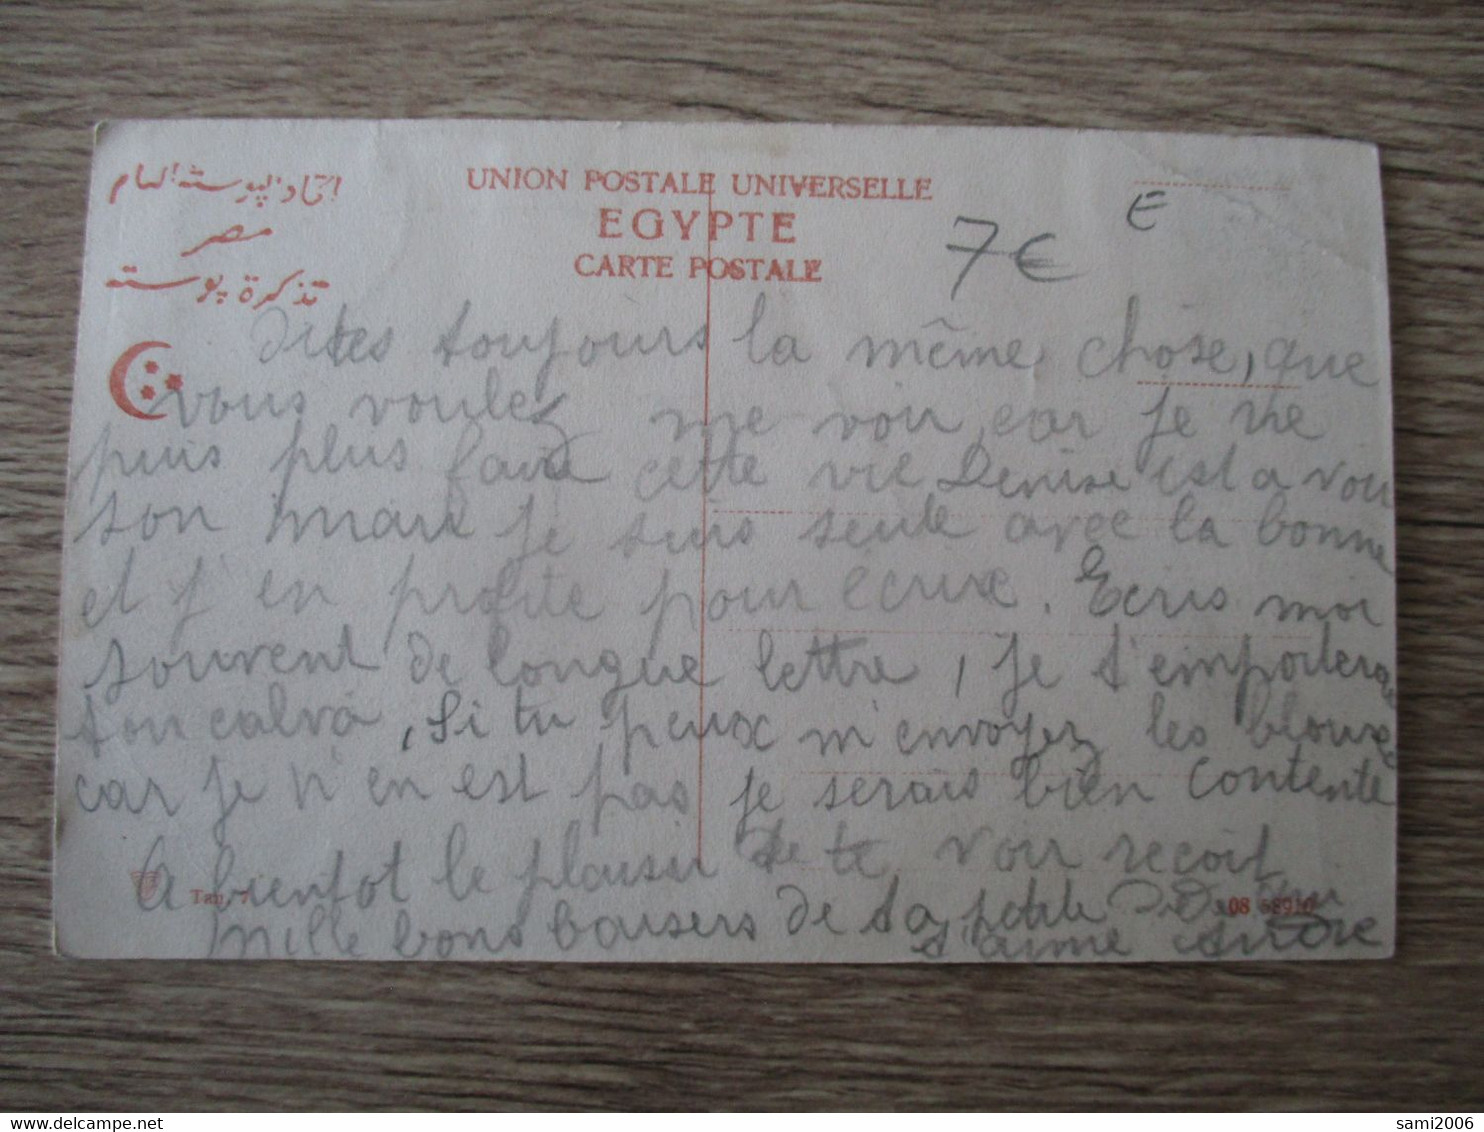 اتحاد البوسته العام
مصر
تذكرة بوسته
UNION POSTALE UNIVERSELLE
EGYPTE
CARTE POSTALE
E
7€
Dites toujours la même chose, que
vous voulez me voir, car je ne
puis plus faire cette vie Denise est a voir
son mari je suis seule avec la bonne
et j'en profite pour ecrire. Ecris moi
souvent de longue lettre, je t'emporterai
ton calva, Si tu peux m'envoyez les blouse
car je n'en est pas je serais bien contente
A bientot le plaisir de te voir reçoit
Mille bons baisers de ta petite
t'aime
08 58910
sami2006